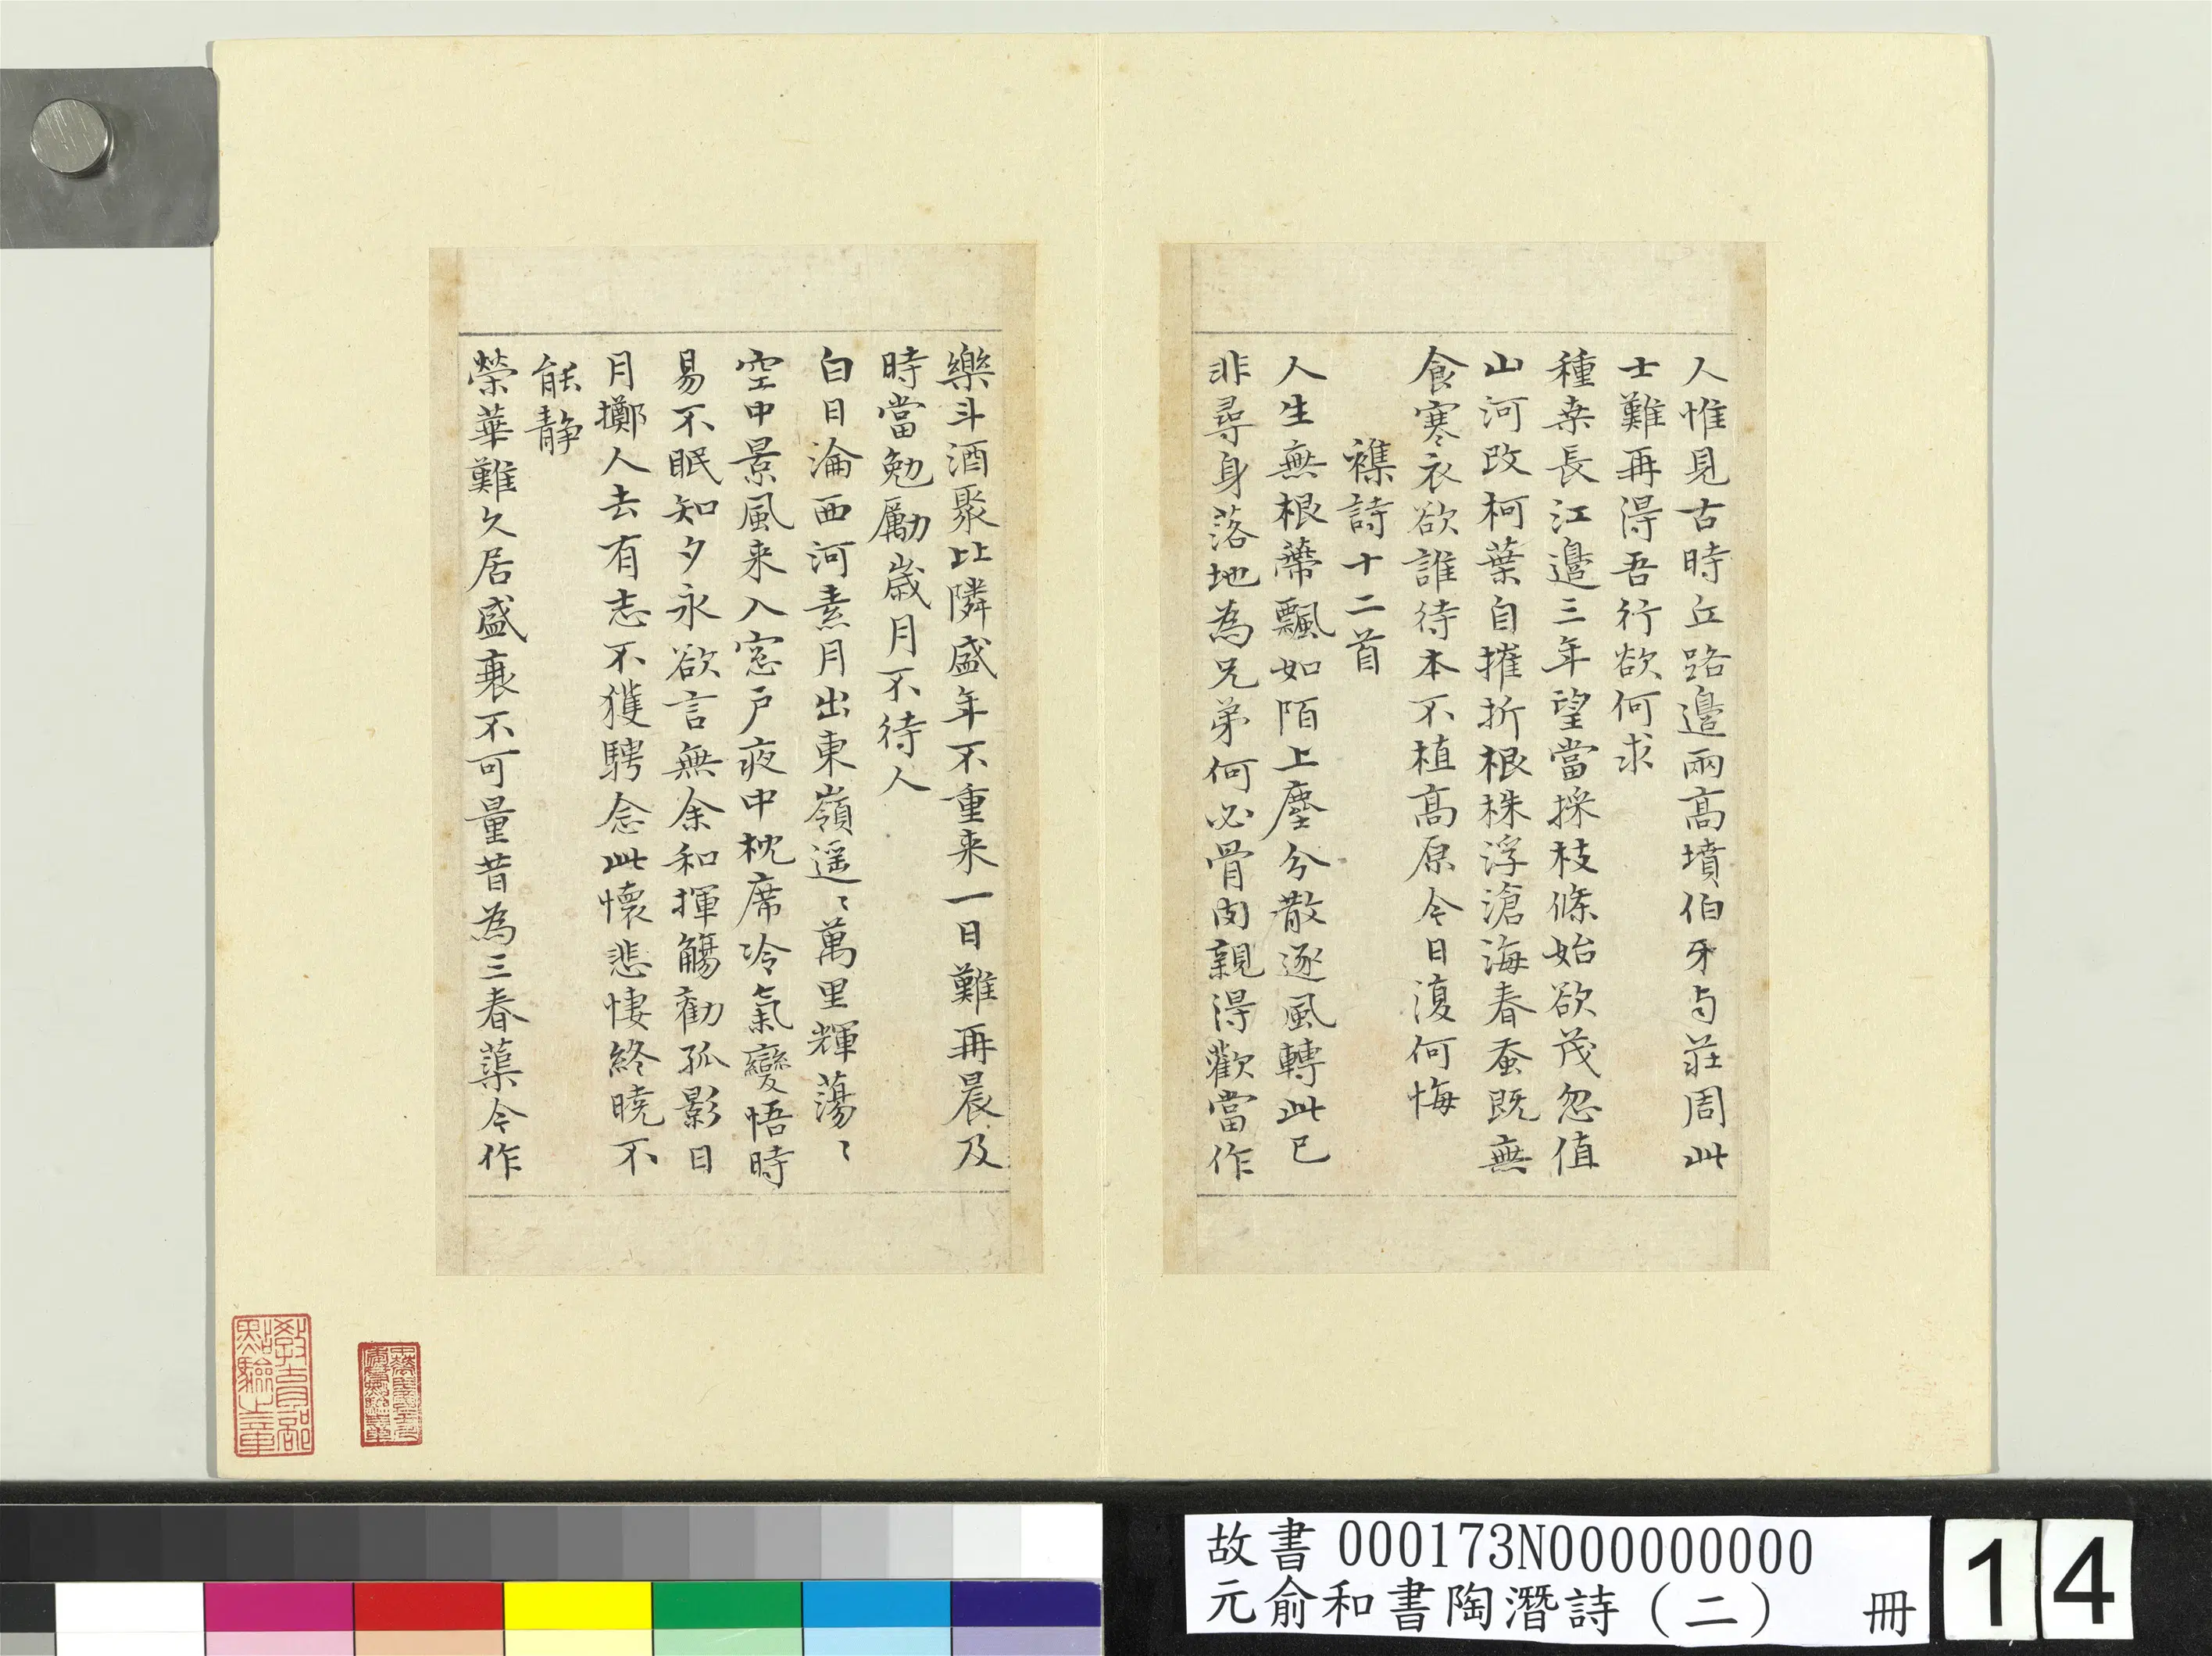 人惟見古時丘路邉兩髙墳伯牙与莊周此
士難再得吾行欲何求
種桒長江邉三年望當採枝條始欲茂忽值
山河改柯葉自摧折根株浮滄海春蚕既無
食寒衣欲誰待本不植髙原今日復何悔
襍詩十二首
人生無根蔕飄如陌上塵分散逐風轉此已
非尋身落地為兄弟何必骨肉親得歡當作
樂斗酒聚比隣盛年不重来一日難再晨及
時當勉勵嵗月不待人
白日淪西河素月出東嶺遥〻萬里輝蕩〻
空中景風来入窓戸夜中枕席冷氣變悟時
易不眠知夕永欲言無余和揮觴勸孤影日
月擲人去有志不獲騁念此懷悲悽終曉不
能静
榮華難久居盛衰不可量昔為三春蕖今作
教育部
點驗之章
故書 000173N000000000
元俞和書陶潛詩（二） 冊
14